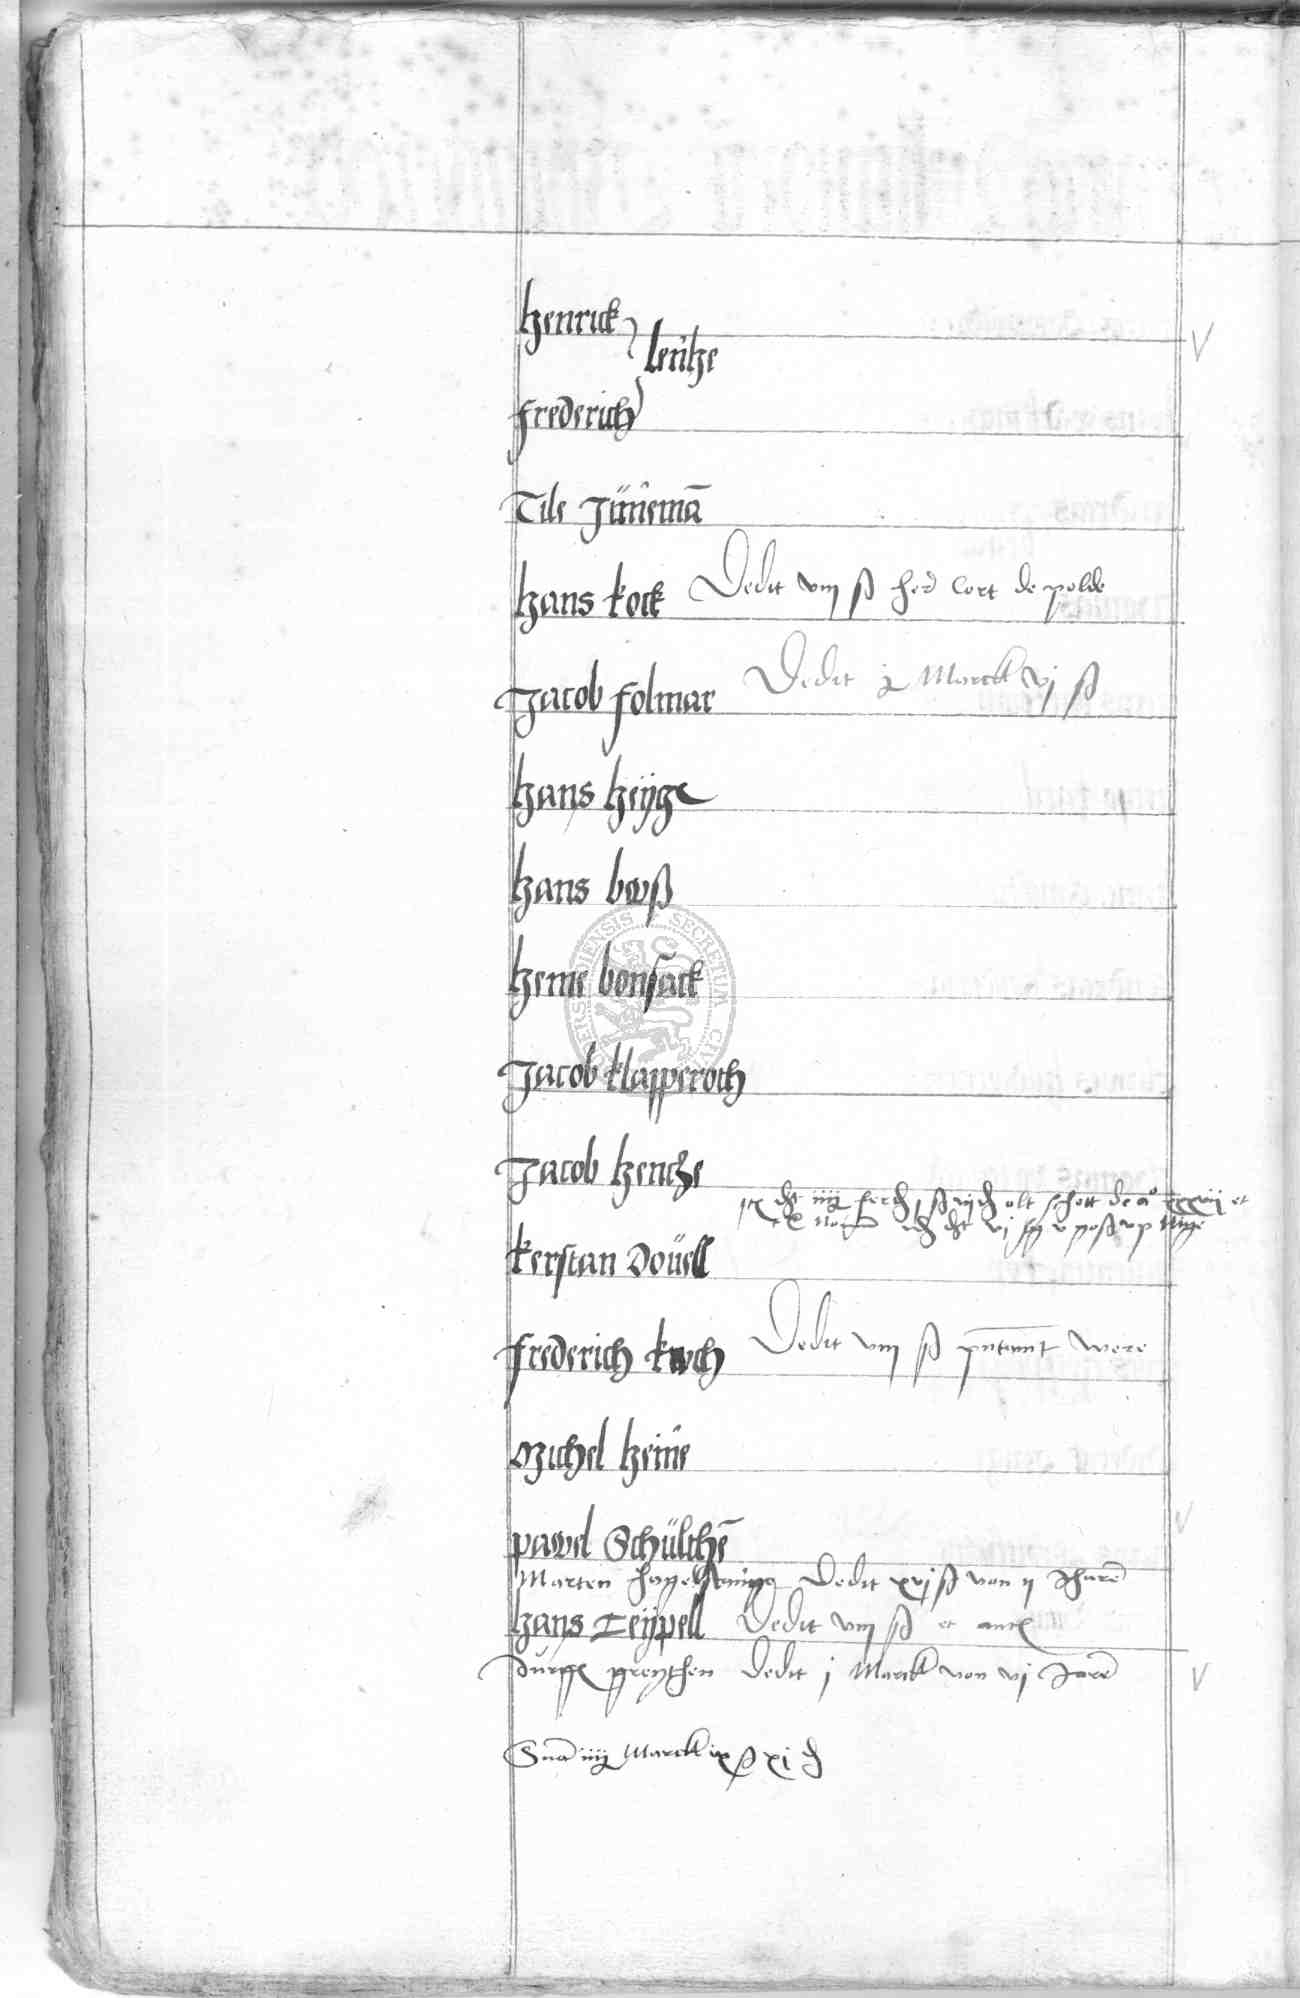 Henrick
Lentze
Frederich
Tile Jünemā
Hans kock Dedit viij ß hed Cort de polde
Jacob folmar Dedit j Marck vj ß
Hans heÿge
Hans boß
Heine bonsack
Jacob klapperoth
Jacob Hentze
olt schott et
Kerstan Döüell
Frederich koch Dedit viij ß were
Michel Heine
pawel Schülthē
Marten Dedit xvj ß von ij Jharē
Hans Teÿpell Dedit viij ß et
Dedit j Marck von vj Jarē
Sūa iiij Marck ix ß xi ₰